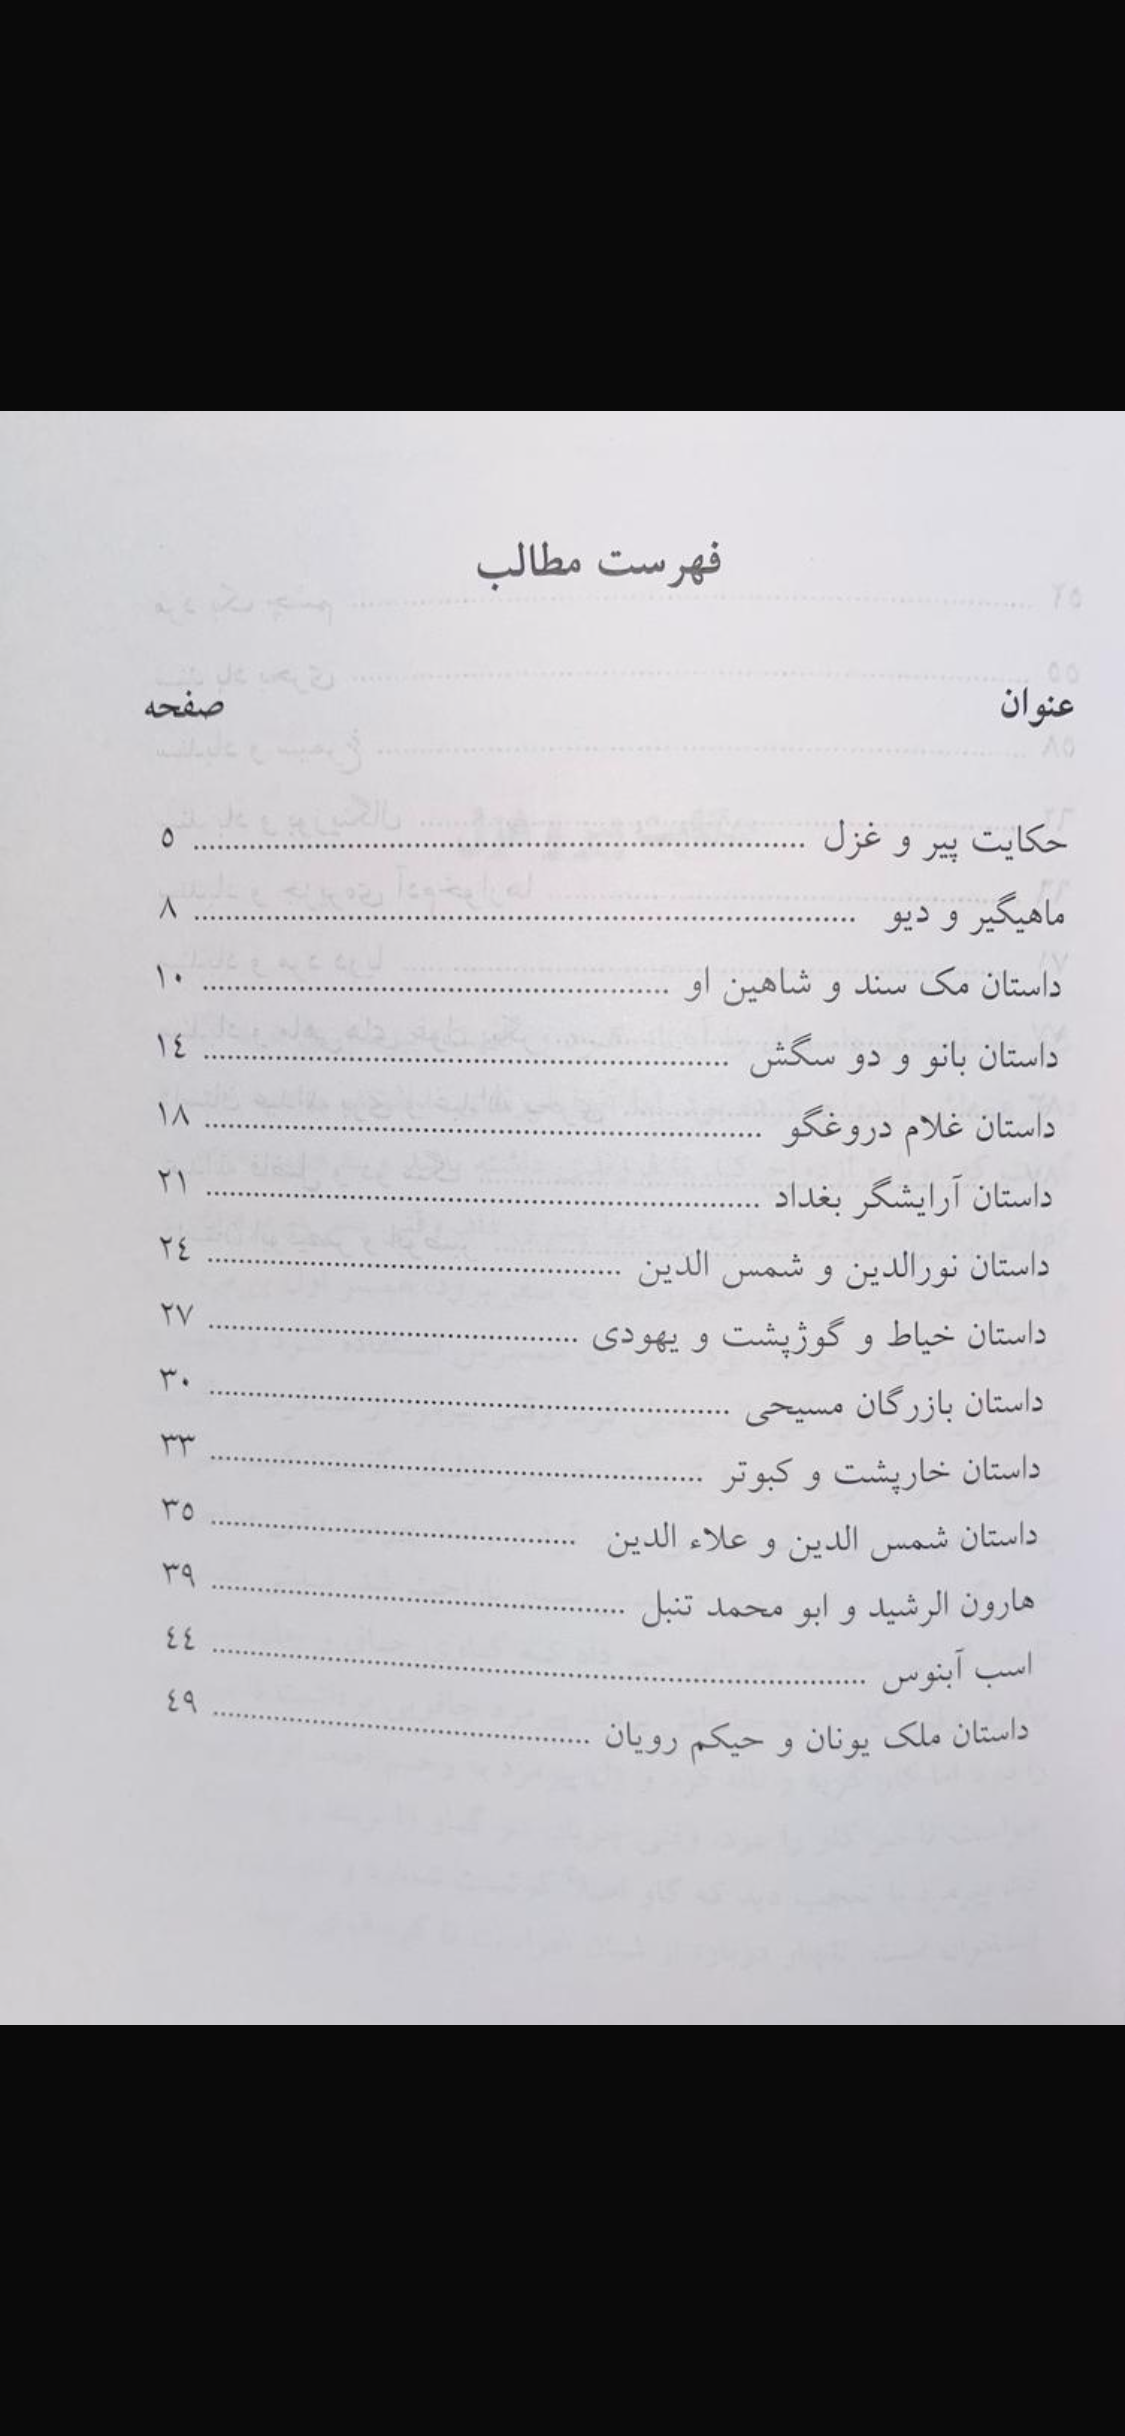 فهرست مطالب
عنوان صفحه
حکایت پیر و غزل ........ ۵
ماهیگیر و دیو ........ ۸
داستان مک سند و شاهین او ........ ۱۰
داستان بانو و دو سگش ........ ۱٤
داستان غلام دروغگو ........ ۱۸
داستان آرایشگر بغداد ........ ۲۱
داستان نورالدین و شمس الدین ........ ۲٤
داستان خیاط و گوژپشت و یهودی ........ ۲۷
داستان بازرگان مسیحی ........ ۳۰
داستان خارپشت و کبوتر ........ ۳۳
داستان شمس الدین و علاء الدین ........ ۳۵
هارون الرشید و ابو محمد تنبل ........ ۳۹
اسب آبنوس ........ ٤٤
داستان ملک یونان و حیکم رویان ........ ٤۹